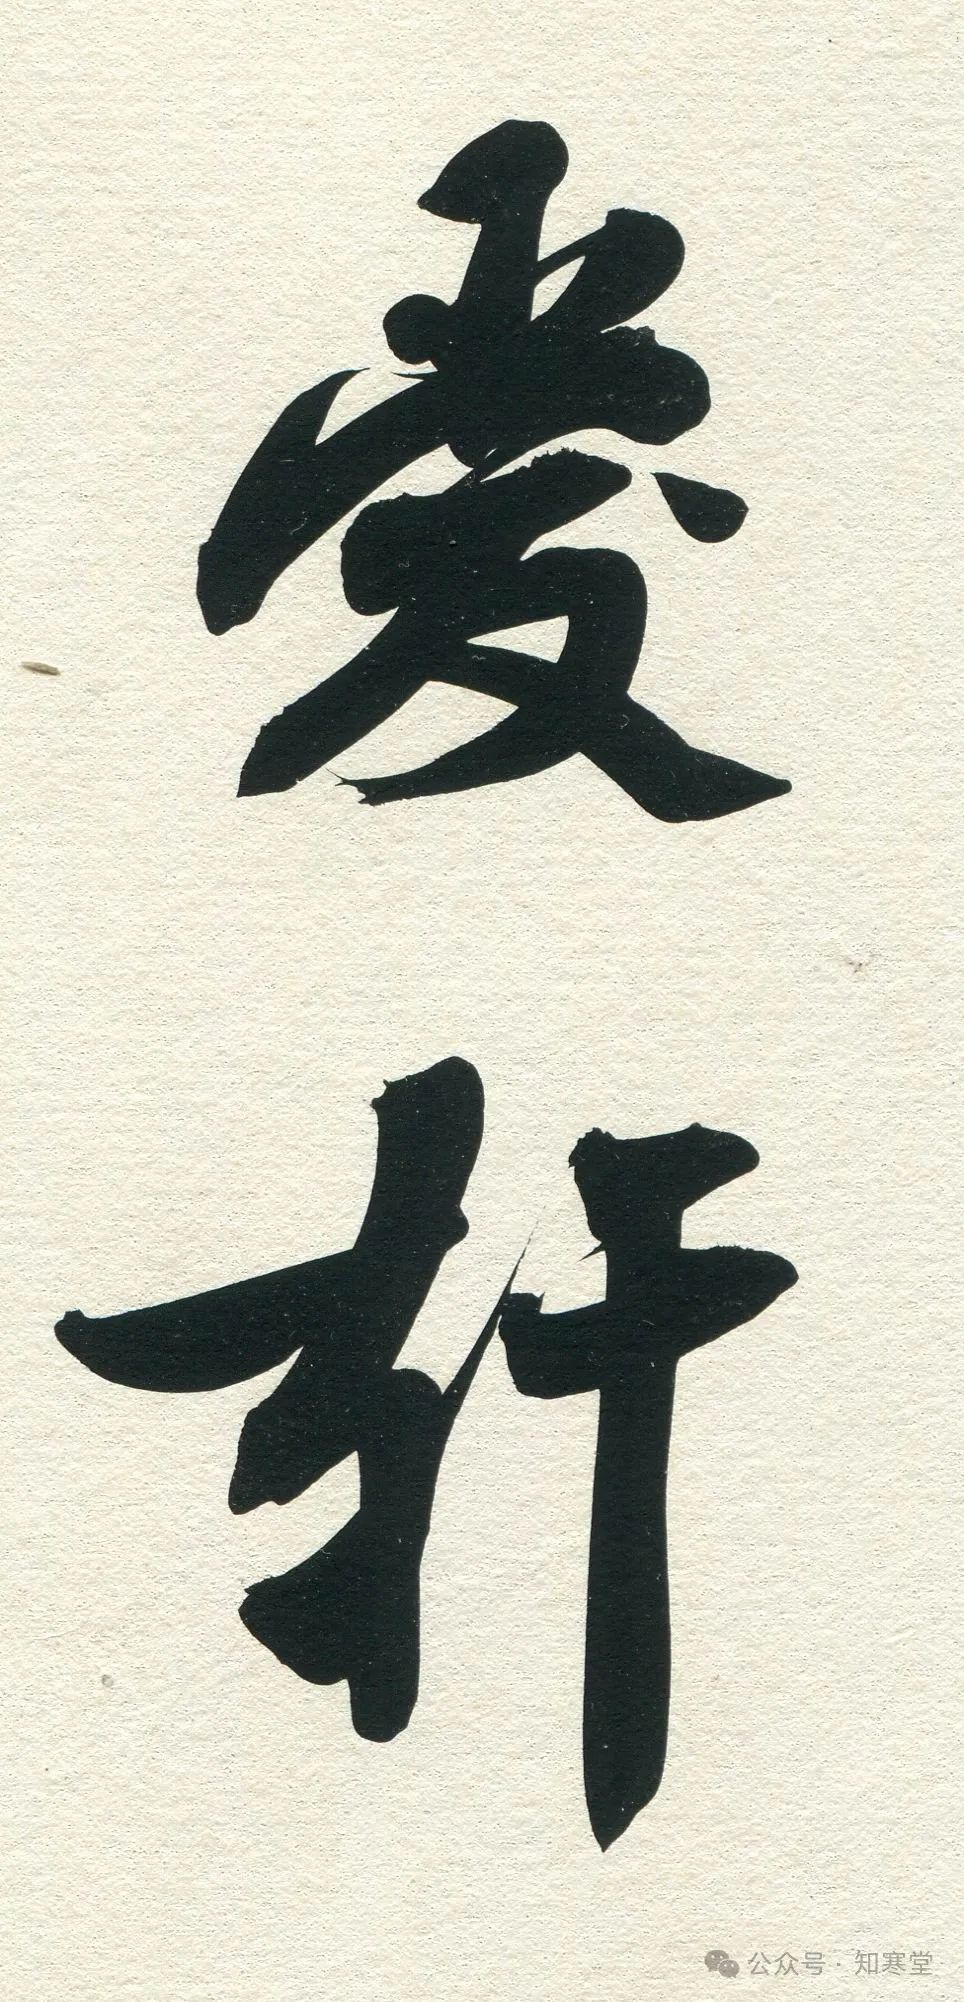 爱
轩
公众号·知寒堂